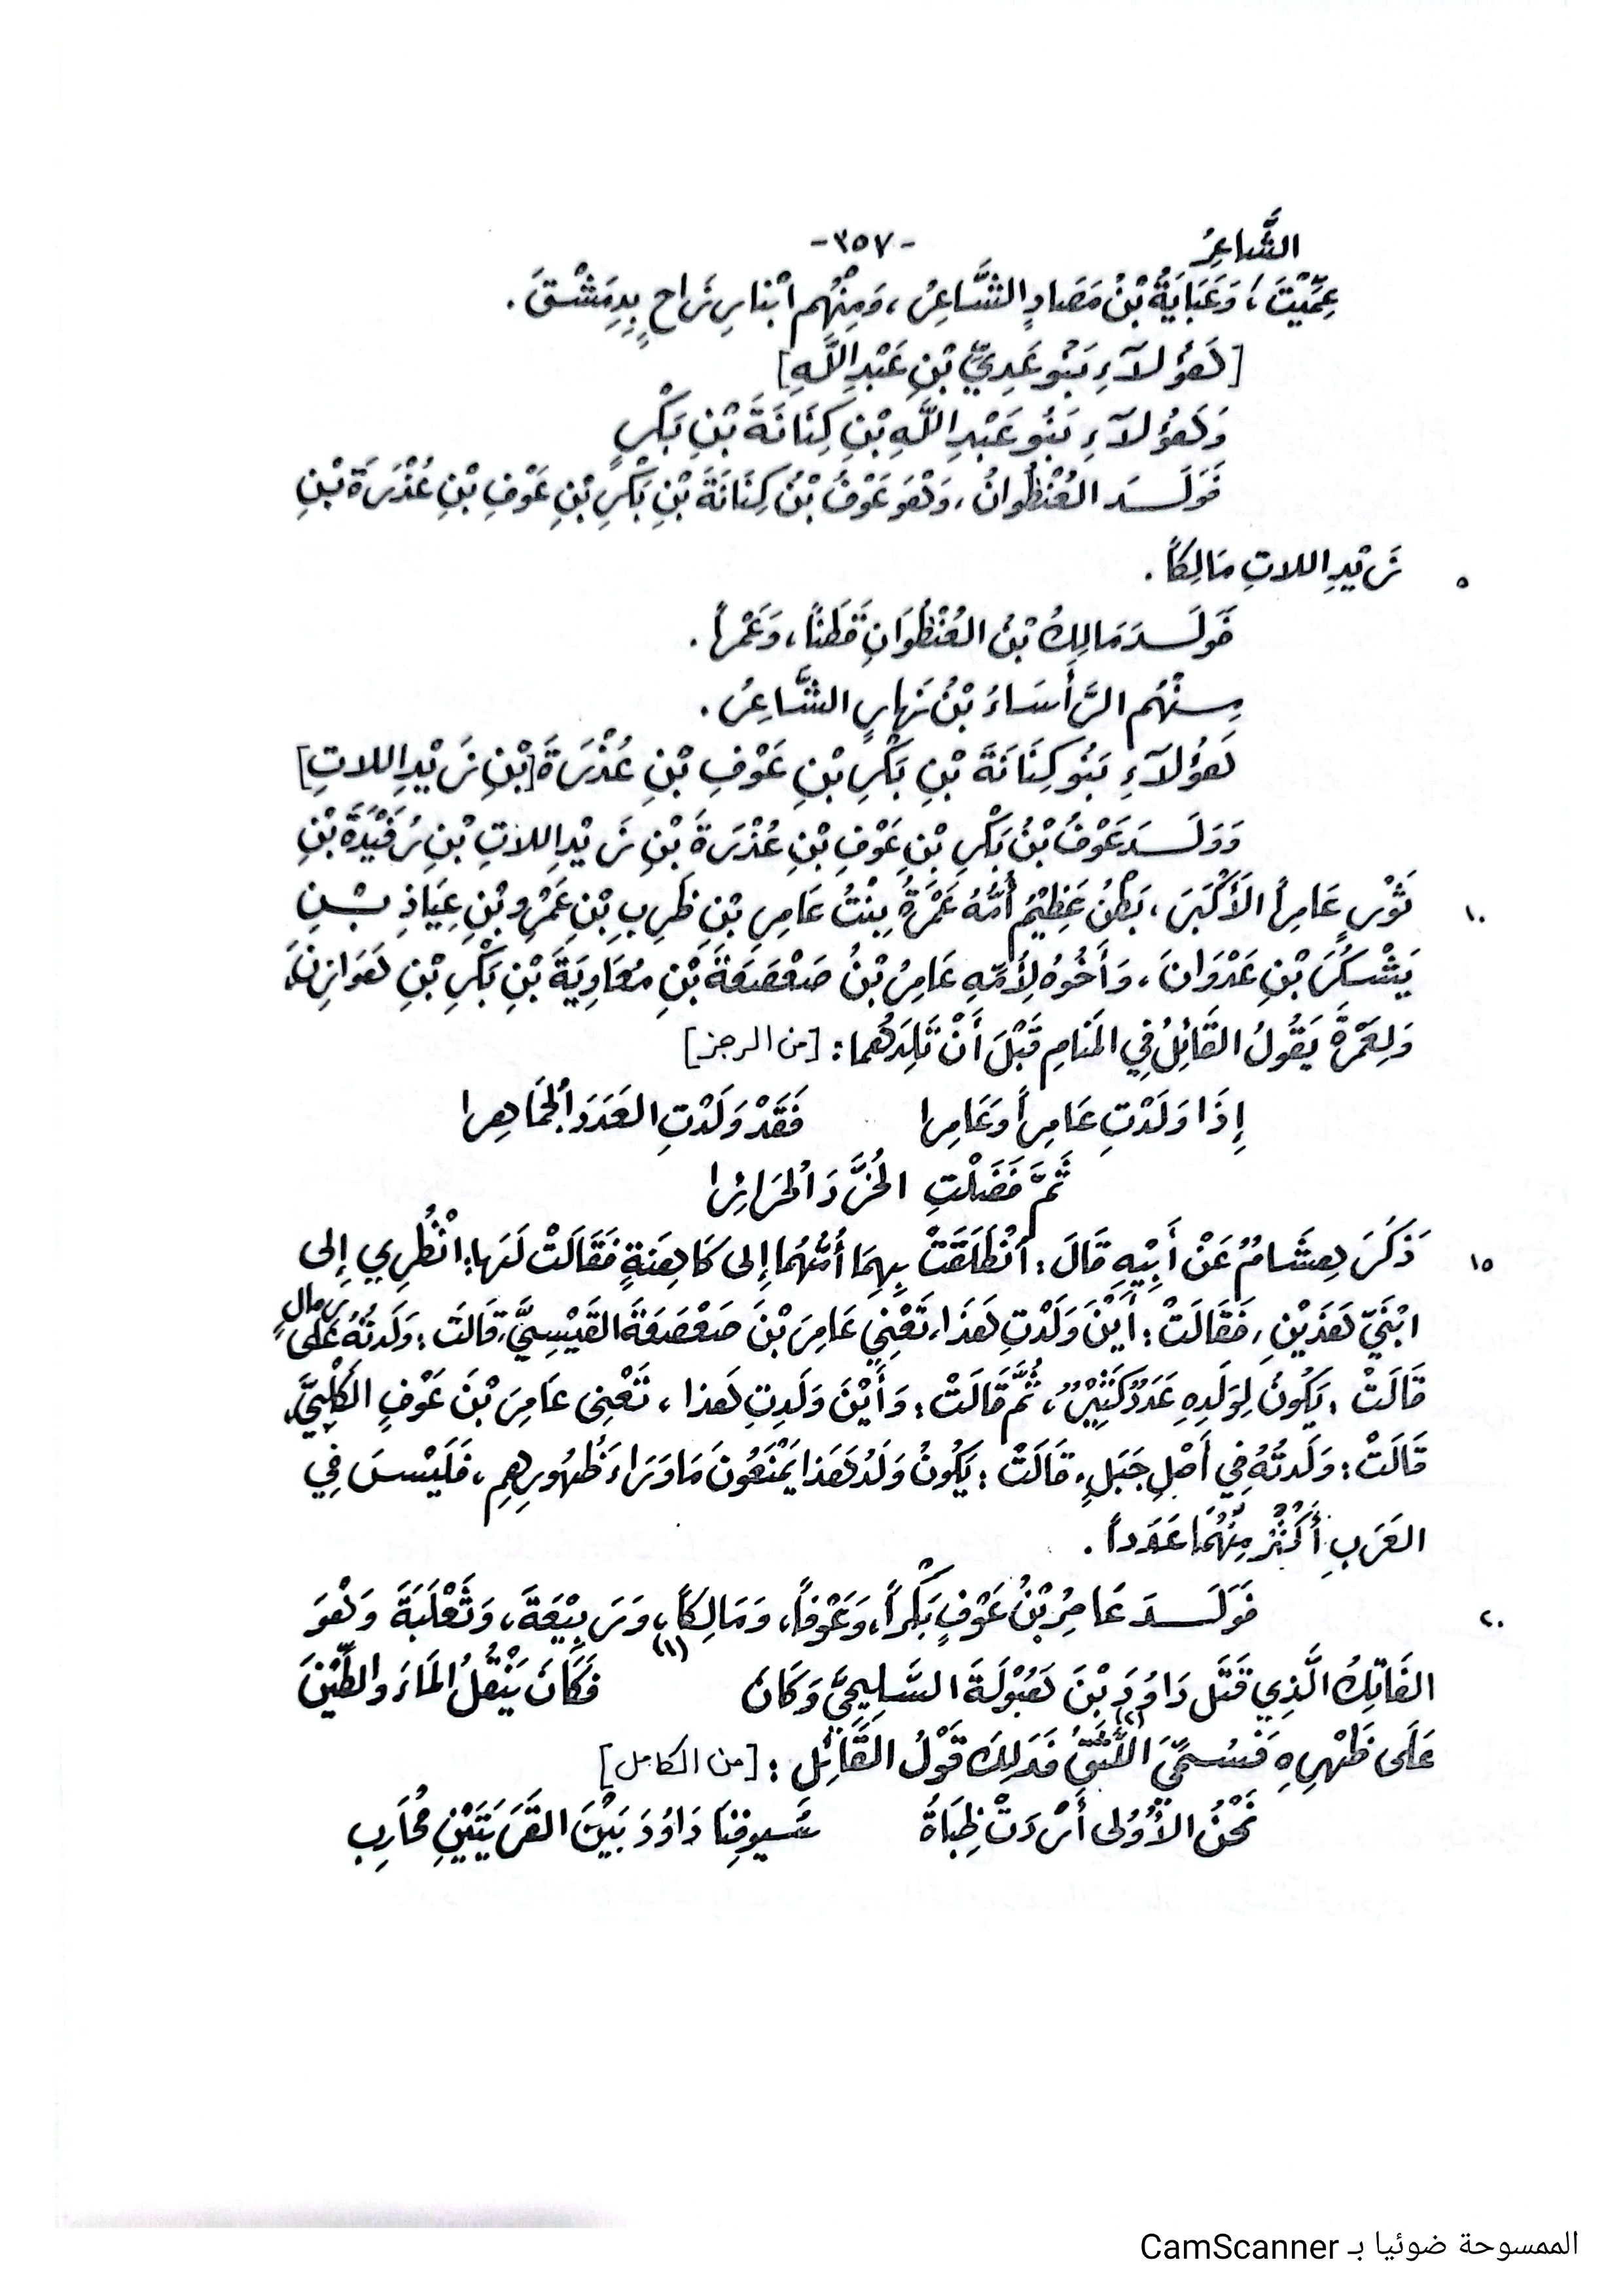 الشَّاعِرُ -٣٥٧-
عِمِّيْتَ، وَعَبَايَةُ بْنُ مَصَادٍ الشَّاعِرُ، وَمِنْهُم ابْنا رِزَاحٍ بِدِمَشْقَ.
[هَؤُلَاءِ بَنُو عَدِيِّ بْنِ عَبْدِ اللَّهِ]
وَهَؤُلَاءِ بَنُو عَبْدِ اللَّهِ بْنِ كِنَانَةَ بْنِ بَكْرٍ
فَوَلَــدَ العُنْظُوانُ، وَهْوَ عَوْفُ بْنُ كِنَانَةَ بْنِ بَكْرِ بْنِ عَوْفِ بْنِ عُذْرَةَ بْنِ
زَيْدِ اللاتِ مَالِكاً. ٥
فَوَلَــدَ مَالِكُ بْنُ العُنْظُوَانِ قَطَناً، وَعَمْراً.
مِــنْهُم الرَّأْسَاءُ بْنُ نَهَارٍ الشَّاعِرُ.
هَؤُلَاءِ بَنُو كِنَانَةَ بْنِ بَكْرِ بْنِ عَوْفِ بْنِ عُذْرَةَ [بْنِ زَيْدِ اللاتِ]
وَوَلَــدَ عَوْفُ بْنُ بَكْرِ بْنِ عَوْفِ بْنِ عُذْرَةَ بْنِ زَيْدِ اللاتِ بْنِ رُفَيْدَةَ بْنِ
ثَوْرٍ عَامِراً الأَكْبَرَ، بَطْنٌ عَظِيْمٌ أُمُّهُ عَمْرَةُ بِنْتُ عَامِرِ بْنِ ظَرِبِ بْنِ عَمْرِو بْنِ عِيَاذِ بْــنِ ١٠
يَشْكُرَ بْنِ عَدْوَانَ، وَأَخُوهُ لِأُمِّهِ عَامِرُ بْنُ صَعْصَعَةَ بْنِ مُعَاوِيَةَ بْنِ بَكْرِ بْنِ هَوَازِنَ،
وَلِعَمْرَةَ يَقُولُ القَائِلُ فِي المَنَامِ قَبْلَ أَنْ تَلِدَهُمَا: [من الرجز]
إِذَا وَلَدْتِ عَامِراً وَعَامِرا فَقَدْ وَلَدْتِ العَدَدَ الجَمَاهِرا
ثُمَّ فَضَلْتِ الخُرَّدَ الحَرَائِرا
ذَكَرَ هِشَامٌ عَنْ أَبِيْهِ قَالَ: انْطَلَقَتْ بِهِمَا أُمُّهُمَا إِلى كَاهِنَةٍ فَقَالَتْ لَهَا: انْظُرِي إِلى ١٥
ابْنَيَّ هَذَيْنِ، فَقَالَتْ: أَيْنَ وَلَدْتِ هَذَا، تَعْنِي عَامِرَ بْنَ صَعْصَعَةَ القَيْسِيَّ، قَالَتْ: وَلَدْتُهُ عَلَى رِمَالٍ
قَالَتْ: يَكُونُ لِوَلَدِهِ عَدَدٌ كَثِيْرٌ، ثُمَّ قَالَتْ: وَأَيْنَ وَلَدتِ هَذا، تَعْنِي عَامِرَ بْنَ عَوْفٍ الكَلْبِيَّ،
قَالَتْ: وَلَدتُهُ فِي أَصْلِ جَبَلٍ، قَالَتْ: يَكُونُ وَلَدُ هَذا يَمْنَعُونَ مَا وَرَاءَ ظُهُورِهِم، فَلَيْسَ فِي
العَرَبِ أَكْثَرُ مِنْهُمَا عَدَداً.
فَوَلَــدَ عَامِرُ بْنُ عَوْفٍ بَكْراً، وَعَوْفاً، وَمَالِكاً، وَرَبِيْعَةَ، وَثَعْلَبَةَ وَهْوَ ٢٠
الفَاتِكُ الَّذِي قَتَلَ دَاوُدَ بْنَ هَبُوْلَةَ السَّلِيحِيَّ وَكَانَ (١) فَكَانَ يَنْقُلُ المَاءَ والطِّيْنَ
عَلَى ظَهْرِهِ فَسُمِّيَ اللَّثِقُ (٢) فَذَلِكَ قَوْلُ القَائِلِ: [من الكامل]
نَحْنُ الأُوْلى أَرْدَتْ ظِبَاةُ سُيوفِنَا دَاوُدَ بَيْنَ القَرْيَتَيْنِ مُحَارِبِ
الممسوحة ضوئيا بـ CamScanner